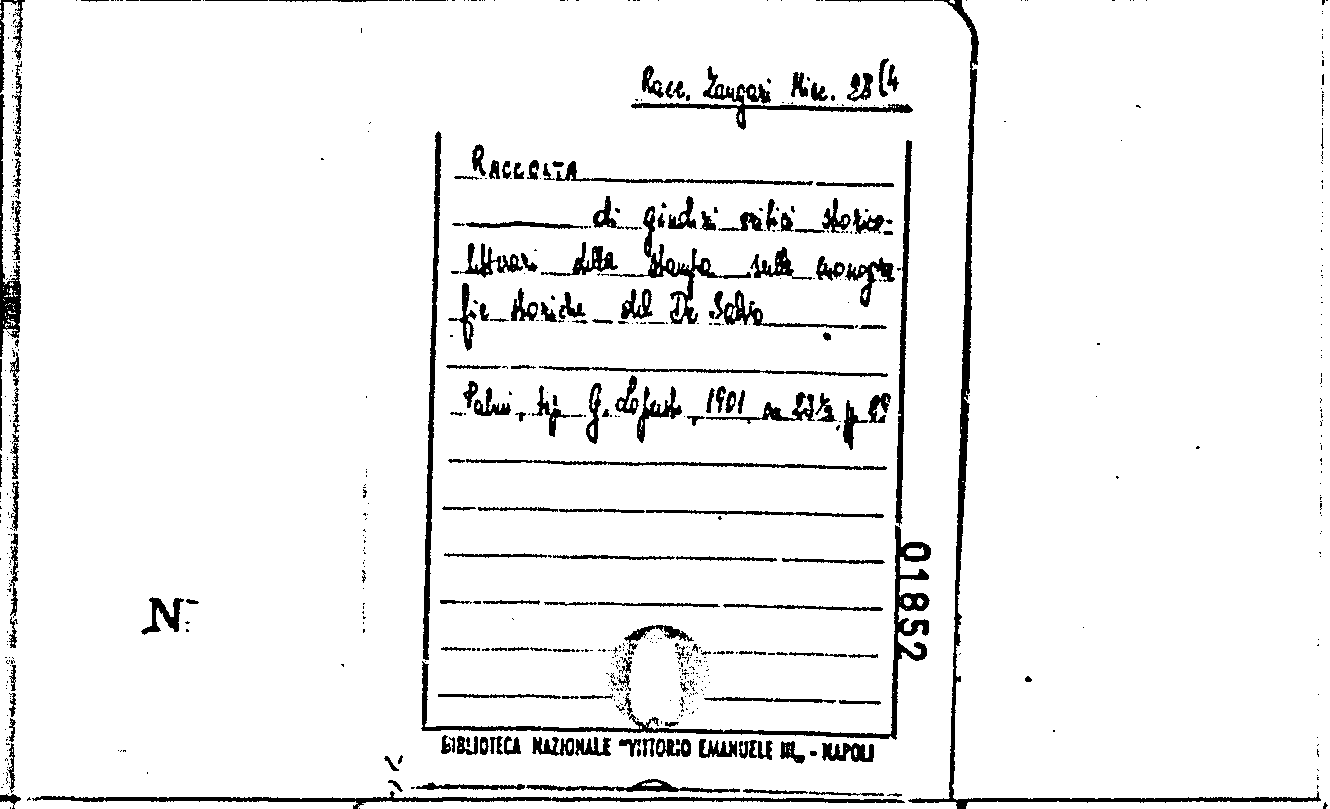 Racc. Zangari Misc. 23(4
RACCOLTA
di giudizi critici storico-
letterari della stampa sulle monogra-
fie storiche del De Salvo
Palmi, tip. G. Lopresti, 1901 23½ p.
01852
N
BIBLIOTECA NAZIONALE "VITTORIO EMANUELE III„ - NAPOLI